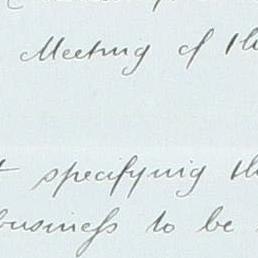 Meeting of the
specifying the
business to be